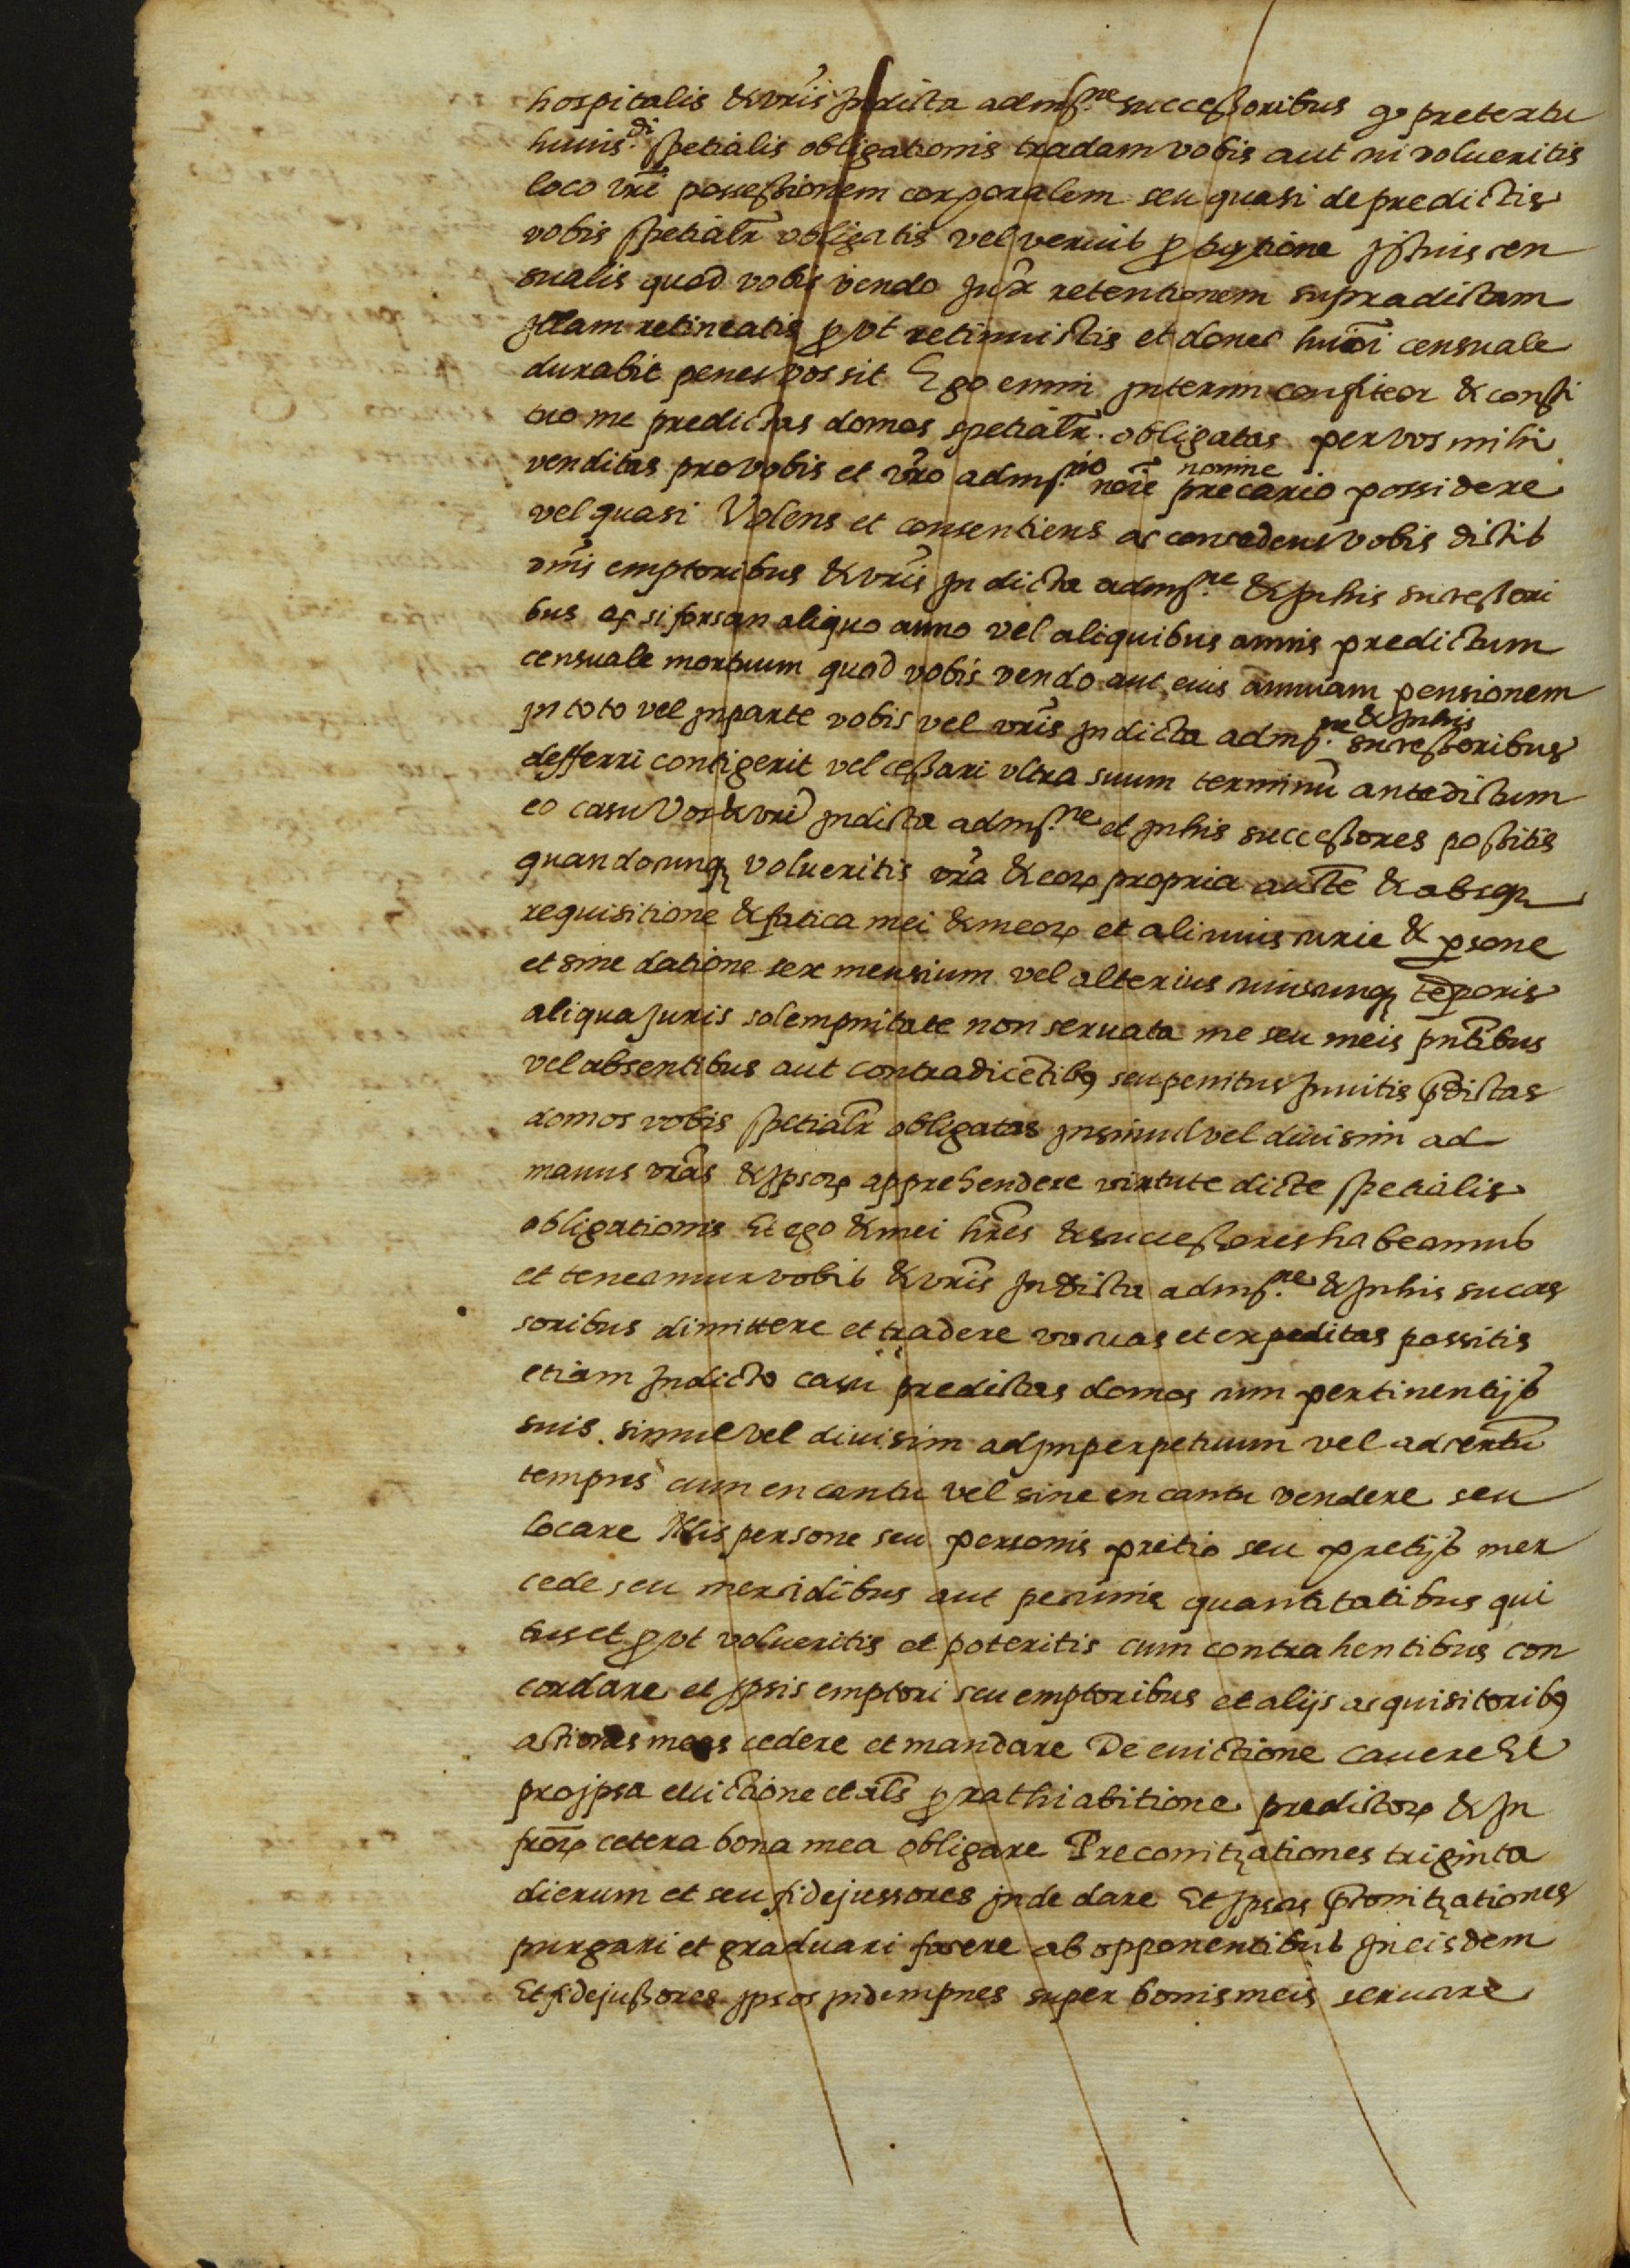 hospitalis & vr̃is Jndicta admiſ.ne succeſsoribus qͦ pretextu
huius.di spetialis obligationis tradam vobis aut ni volueritis
loco vr̃i poſſeſsionem corporalem seu quasi de predictis
vobis spetialr̃ obligatis vel
sualis quod vobis vendo Jux̃ retentionem supradictam
Jllam retineatis ꝓut retinuistis et donec huiõi censuale
durabit penes vos sit Ego enim Jnterim confiteor & consti
tuo me predictas domos spetialr̃. obligatas per vos mihi
venditas pro vobis et vr̃o admiſ.nio noĩe precario nomine possidere
vel quasi Volens et consentiens ac concedens vobis dictis
dnĩs emptoribus & vr̃is Jn dicta admiſ.ne & Jnhis succeſsori
bus qͦ si forsan aliquo anno vel aliquibus annis predictum
censuale mortuum quod vobis vendo aut eius annuam pensionem
Jn toto vel Jnparte vobis vel vr̃is Jn dicta admiſ.ne & Jnhis succeſsoribus
defferri contigerit vel ceſsari vltra suum terminũ antedictum
eo casu Vos & vr̃i Jndicta admiſ.ne et Jnhis succeſsores poſsitis
quandocunqꝫ volueritis vr̃a & eoꝝ propria aucte & absqꝫ
requisitione & fatica mei & meoꝝ et alicuius curie & ꝑsone
et sine datione sex mensium vel alterius cuiuscunqꝫ tẽporis
aliqua Juris solempnitate non seruata me seu meis pñtibus
vel absentibus aut contradicẽtibꝫ seu penitus Jnuitis p̃dictas
domos vobis spetialr̃ obligatas Jnsimul vel diuisim ad
manus vr̃as & Jpsoꝝ apprehendere virtute dicte spetialis
obligationis Et ego & mei hr̃es & succeſsores habeamus
et teneamur vobis & vr̃is Jn dicta admiſ.ne & Jnhis succes
soribus dimittere et tradere vacuas et expeditas possitis
etiam Jndicto casu predictas domos cum pertinentijs
suis simul vel diuisim ad Jmperpetuum vel ad certũ
tempus cum encantu vel sine encantu vendere seu
locare Illis persone seu personis pretio seu pretijs mer
cede seu mercidibus aut pecunie quantitatibus qui
bus et ꝓut volueritis et poteritis cum contrahentibus con
cordare et Jpsis emptori seu emptoribus et alijs acquisitoribꝫ
actiones meas cedere et mandare De euictione cauere Et
pro Jpsa euictione et al̃s ꝓ rathiabitione predictoꝝ & Jn
fr̃oꝝ cetera bona mea obligare Preconitzationes triginta
dierum et seu fidejussores Jnde dare Et Jpsas p̃conitzationes
purgari et graduari facere ab opponentibus Jneisdem
Et fidejuſsores Jpsos Jndempnes super bonis meis seruare